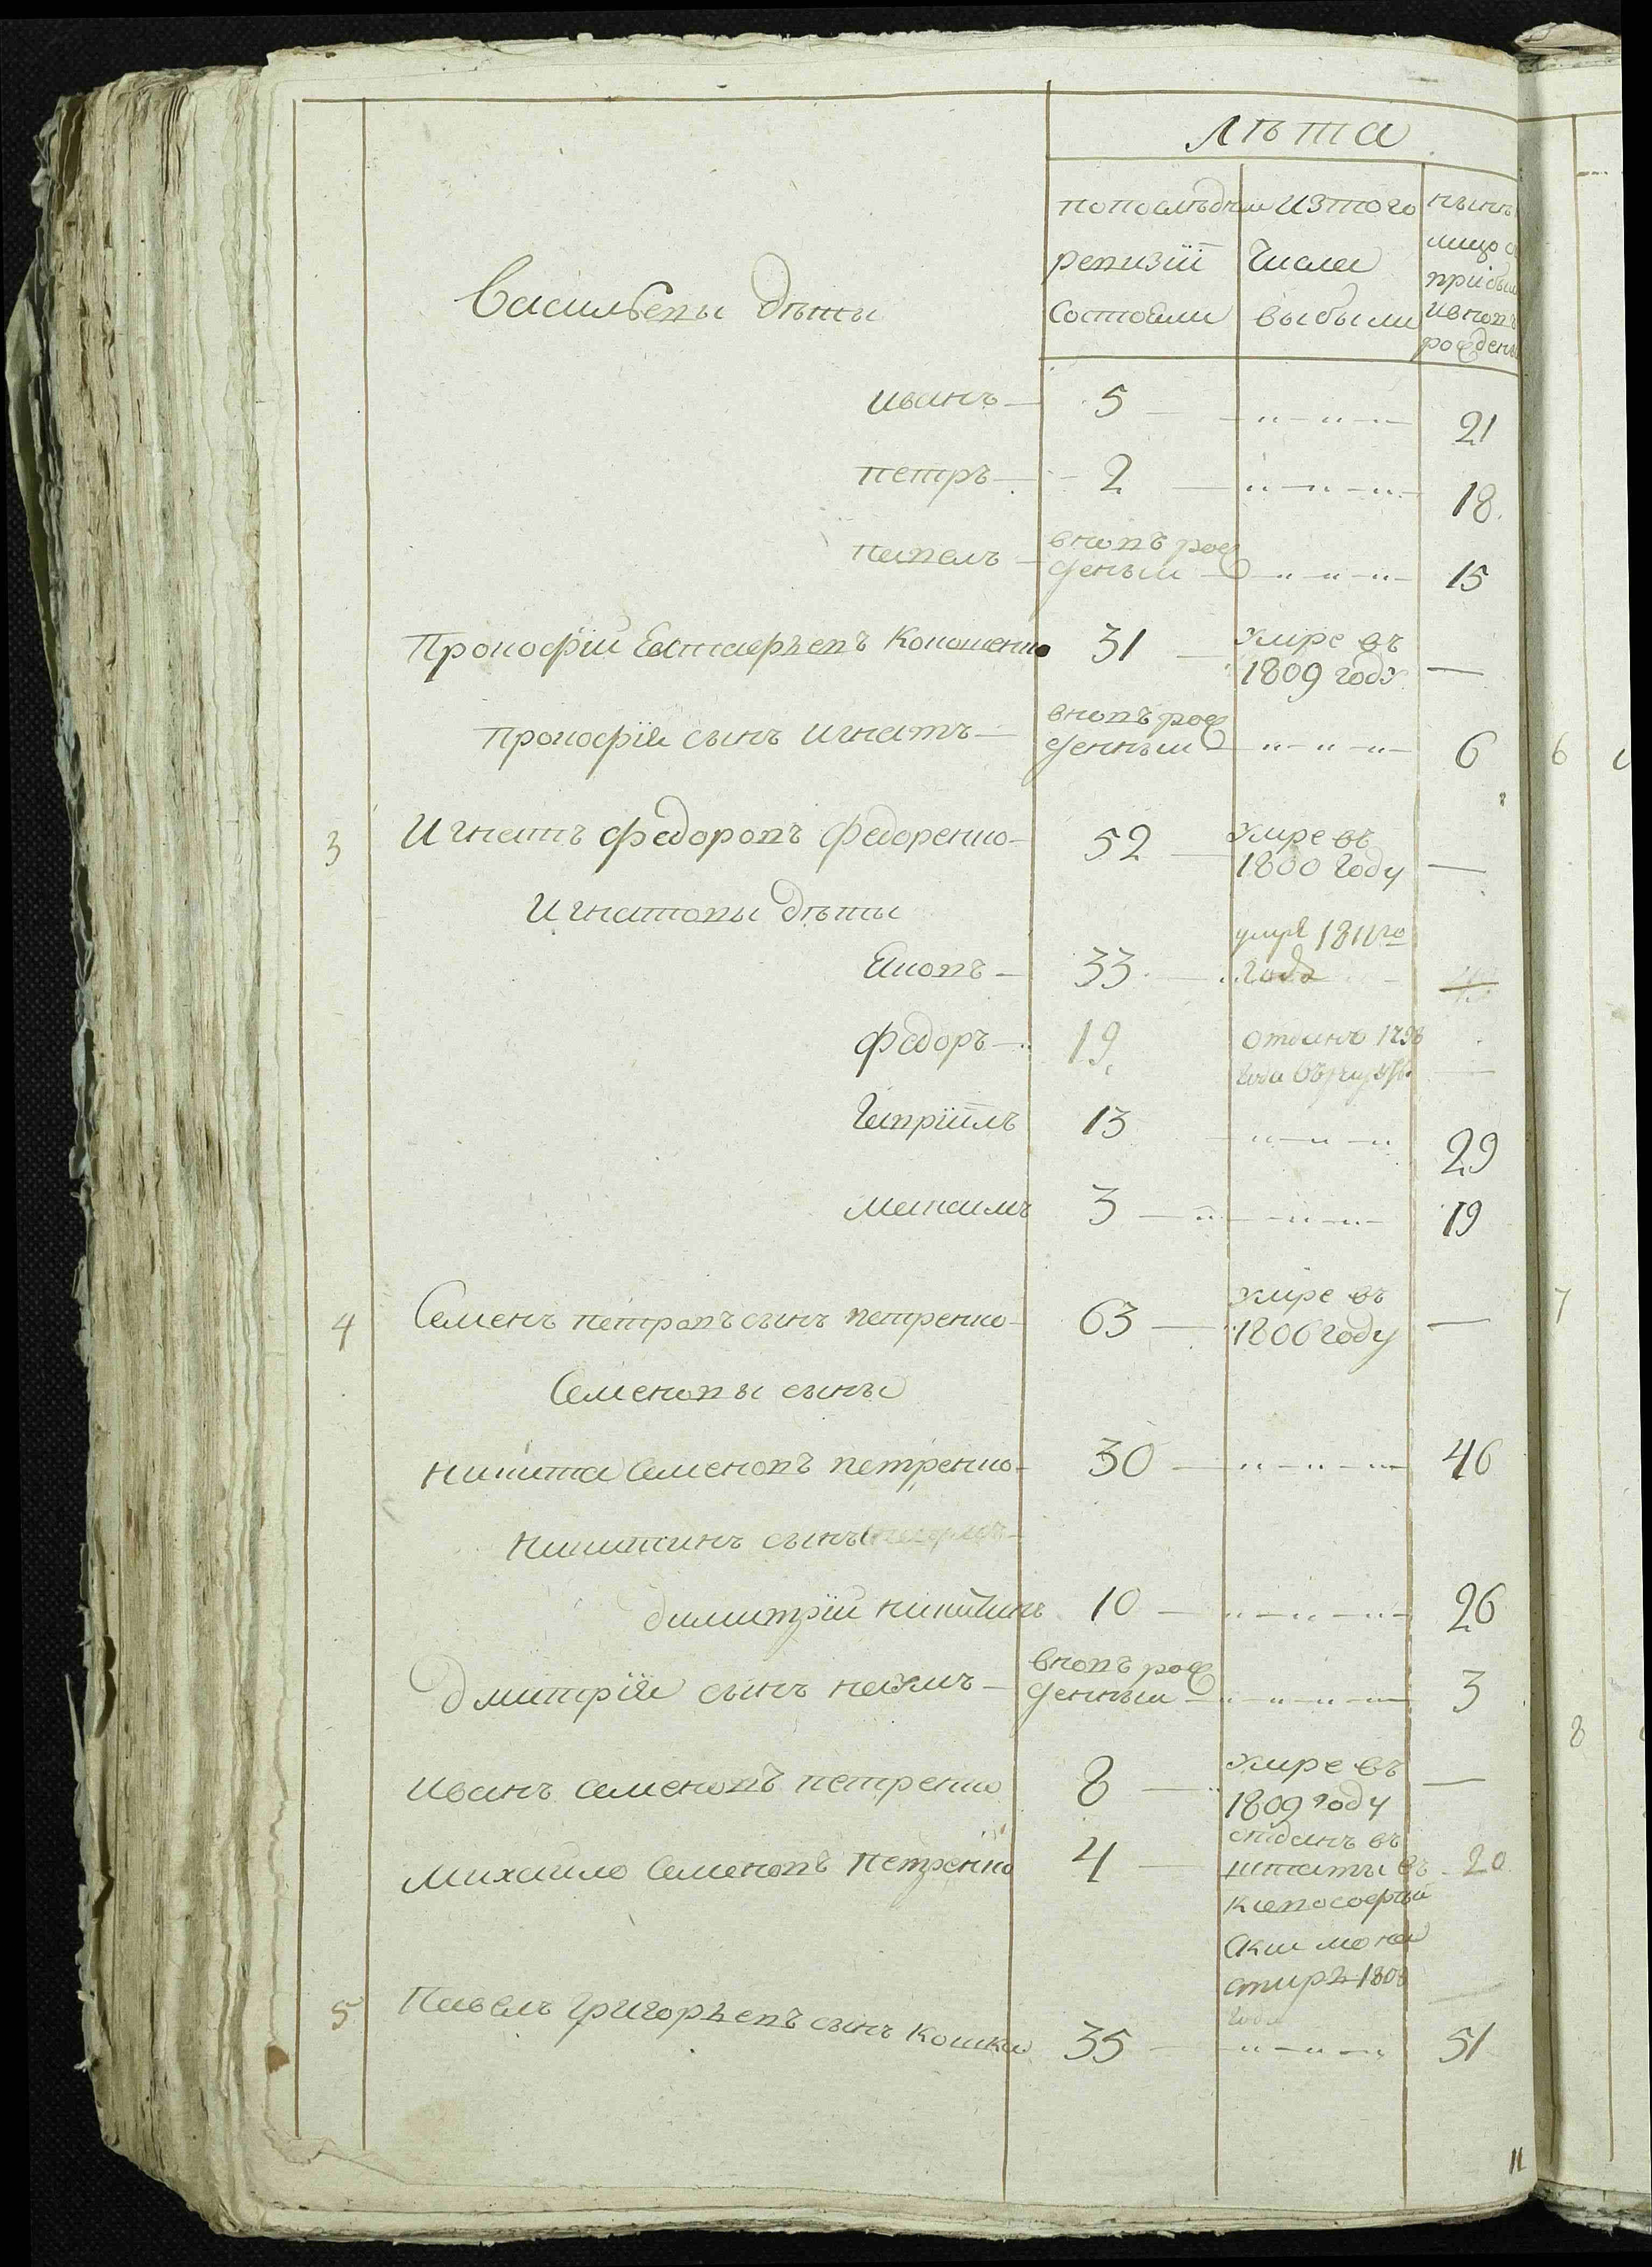 Лѣта
попослѣднѣи ревизїи Состояли
Изтого Числа выбыли
нынѣ
лицо
прибы
ивновъ
рожден
Васильевы дѣти
иванъ 5 21
петръ 2 18
павелъ вновь рожденыи 15
Прокофїй Евстафьевъ Кономенко 31 умре въ 1809 году
прокофїя сынъ игнатъ вновь рожденныи 6
3 Игнатъ Федоровъ Федоренко 52 умре въ 1800 году
Игнатовы дѣти
Яковъ 33 умре 1811го года
Федоръ 19 отданъ 1798 года въ рекруты
Гаврїилъ 13 29
Максимъ 3 19
4 Семенъ петровъ сынъ петренко 63 умре въ 1806 году
Семеновы сыны
никита Семеновъ петренко 30 46
никитинъ сынъ
димитрїи никитинъ 10 26
дмитрїя сынъ наумъ вновь рожденныи 3
иванъ Семеновъ петренко 8 умре въ 1809 году
Михаило Семеновъ петренко 4 отданъ въ штаты въ Киевософїй Скии мона стирь 1808 года 20
5 Павелъ григорьевъ сынъ Кошка 35 51
11
6
7
8